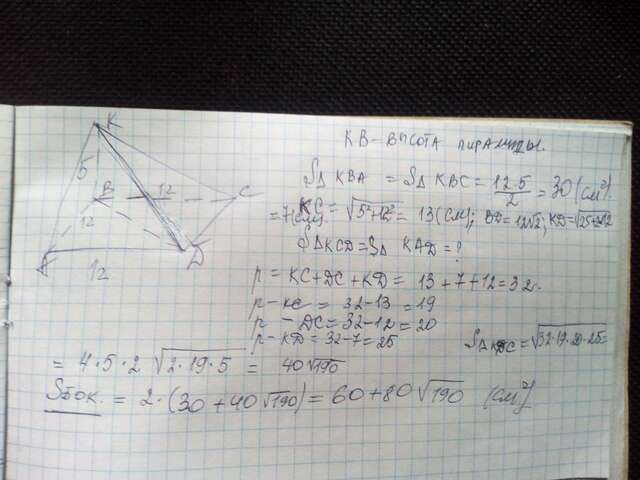 K
5
B
12
C
12
A
D
12
KB - высота пирамиды.
S△ KBA = S△ KBC = 12·5/2 = 30 (см²)
KC = √5²+12² = 13 (см); BD = 12√2; KD = √25+
S△ KCD = S△ KAD = ?
p = KC + DC + KD = 13 + 7 + 12 = 32.
p - KC = 32 - 13 = 19
p - DC = 32 - 12 = 20
p - KD = 32 - 7 = 25
S△ KDC = √32·19·20·25 =
= 4·5·2 √2·19·5 = 40√190
Sбок. = 2·(30 + 40√190) = 60 + 80√190 (см²)